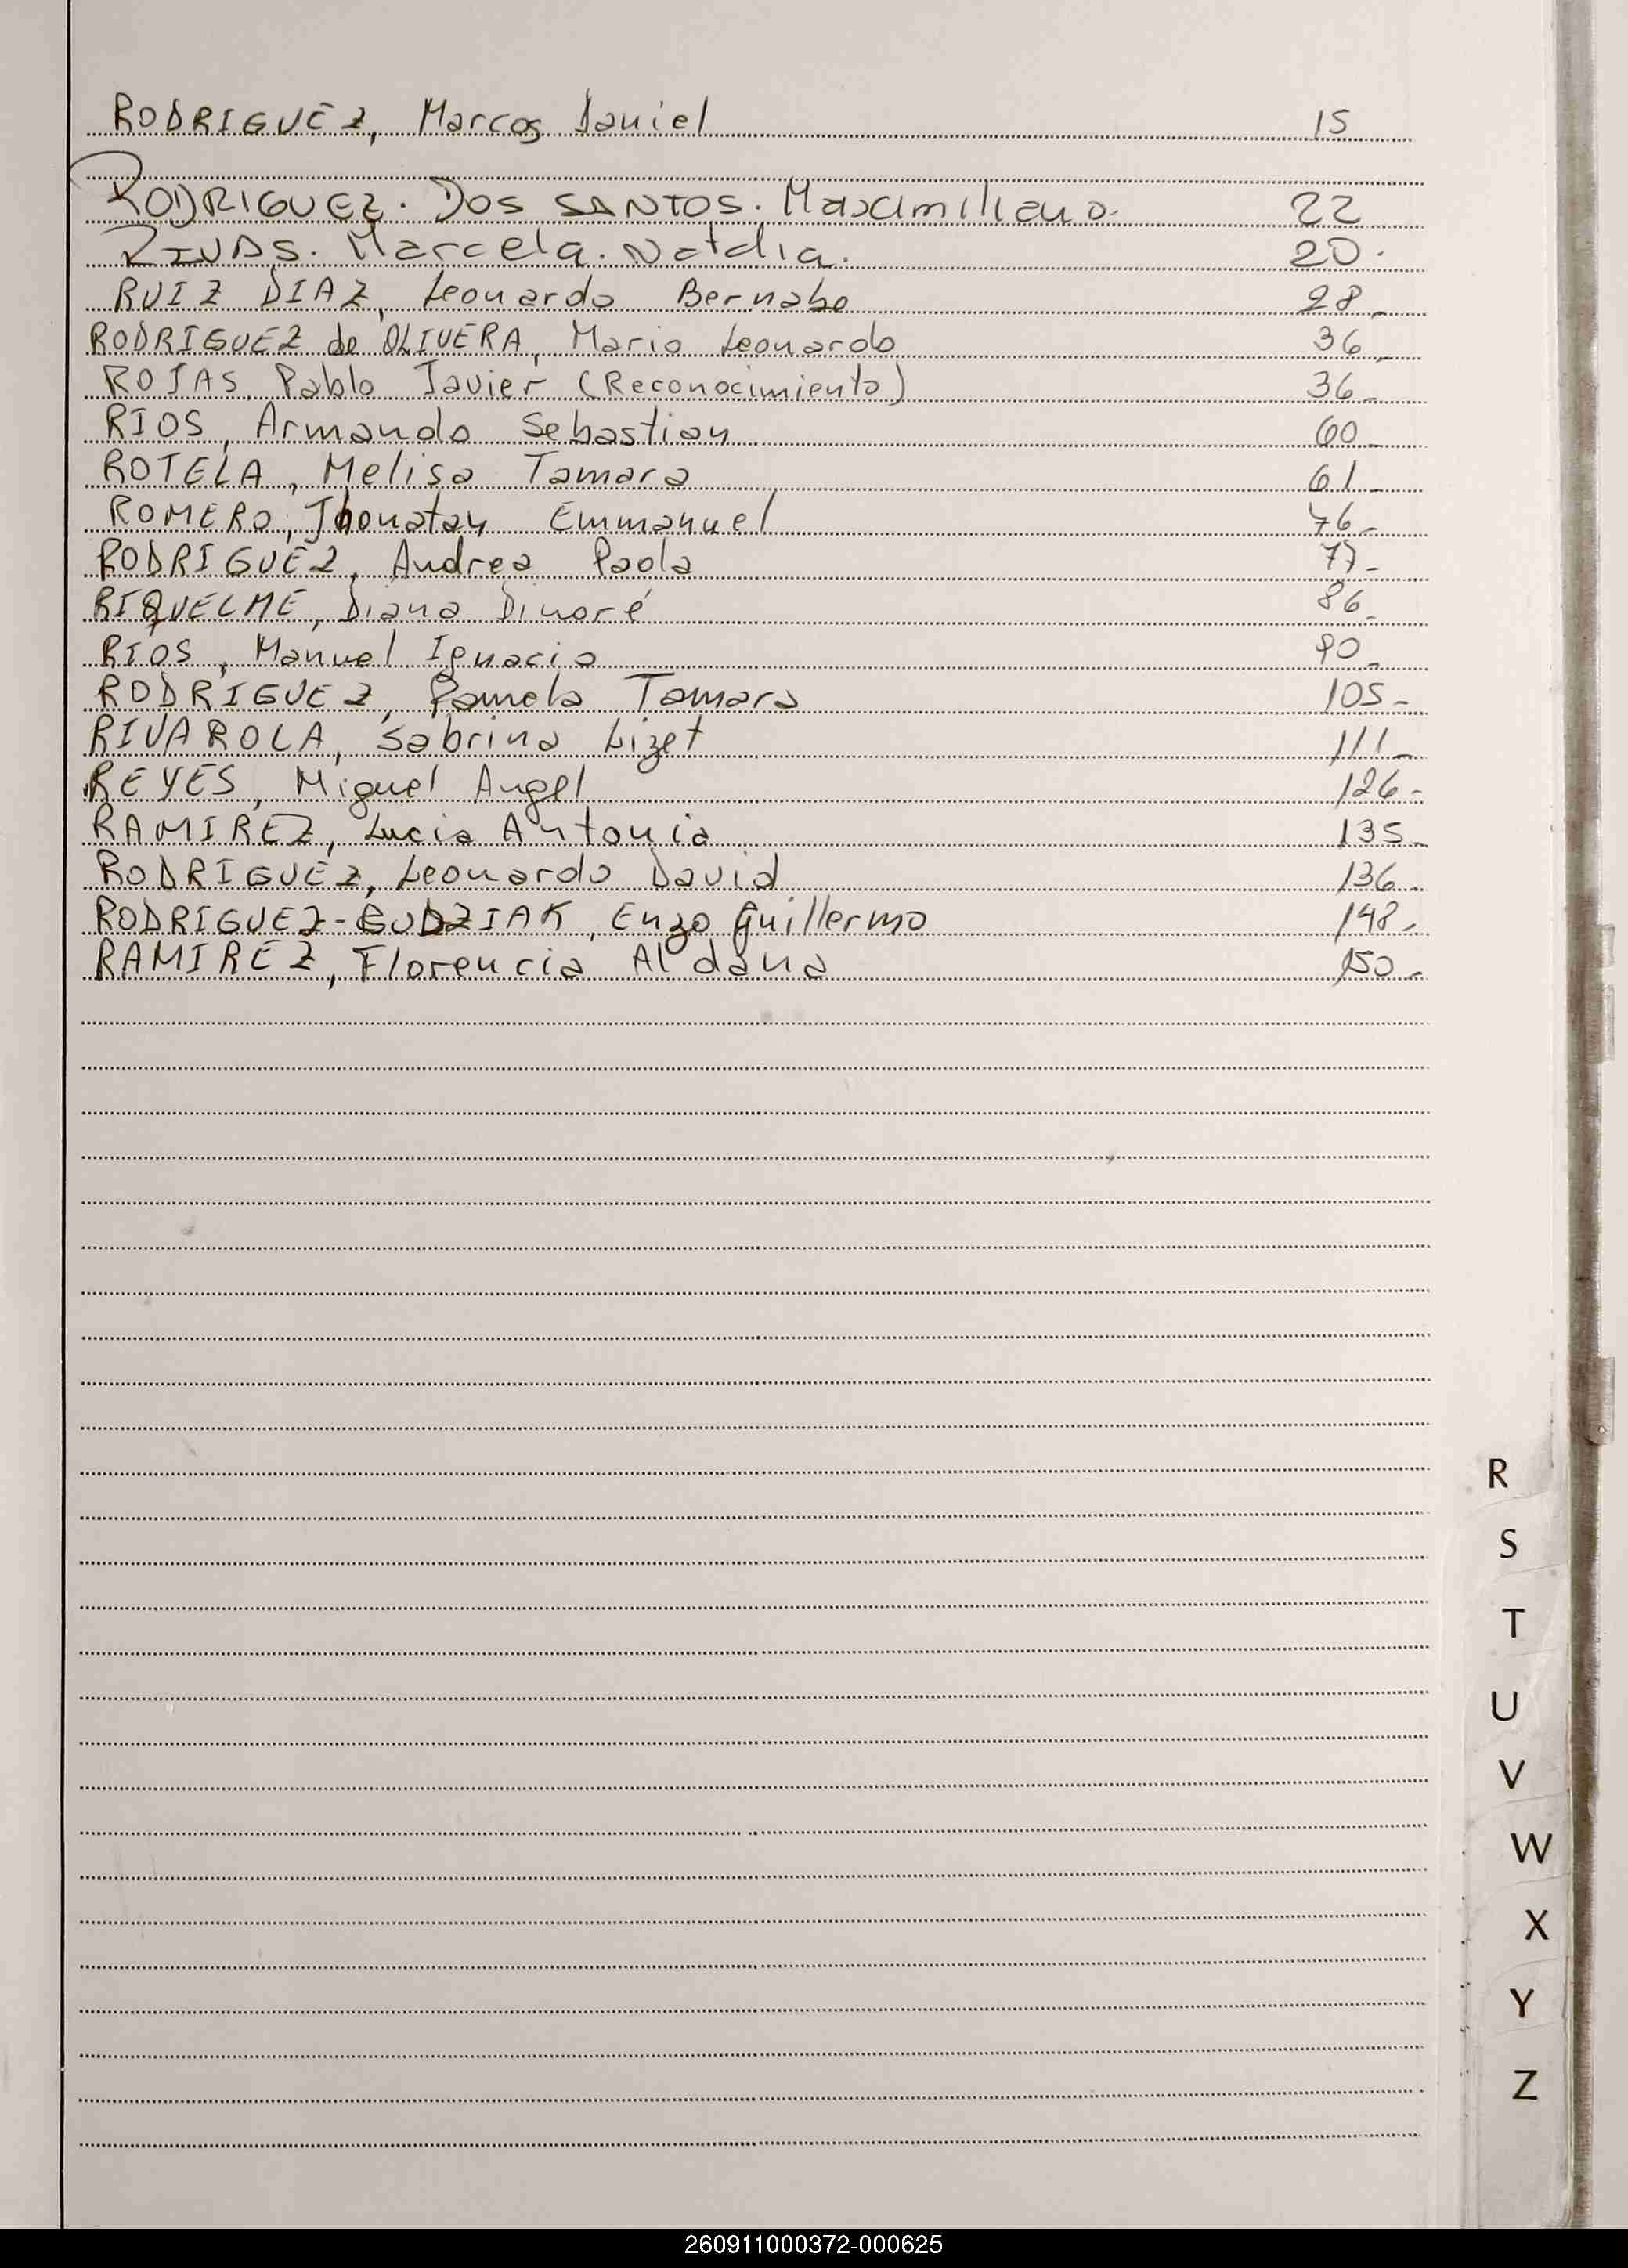 RODRIGUEZ, Marcos Daniel 15
RODRIGUEZ. DOS SANTOS. Maximiliano. 22
RIVAS. Marcela. Natalia. 20.
RUIZ DIAZ, Leonardo Bernabe 28-
RODRIGUEZ de OLIVERA, Mario Leonardo 36-
ROJAS, Pablo Javier (Reconocimiento) 36-
RIOS, Armando Sebastian 60-
ROTELA, Melisa Tamara 61-
ROMERO, Jhonatan Emmanuel 76-
RODRIGUEZ, Andrea Paola 77-
RIQUELME, Diana Dinoré 86-
RIOS, Manuel Ignacio 90-
RODRIGUEZ, Pamela Tamara 105-
RIVAROLA, Sabrina Lizet 111-
REYES, Miguel Angel 126-
RAMIREZ, Lucia Antonia 135-
RODRIGUEZ, Leonardo David 136-
RODRIGUEZ-BUDZIAK, Enzo Guillermo 148-
RAMIREZ, Florencia Aldana 150-
R
S
T
U
V
W
X
Y
Z
260911000372-000625